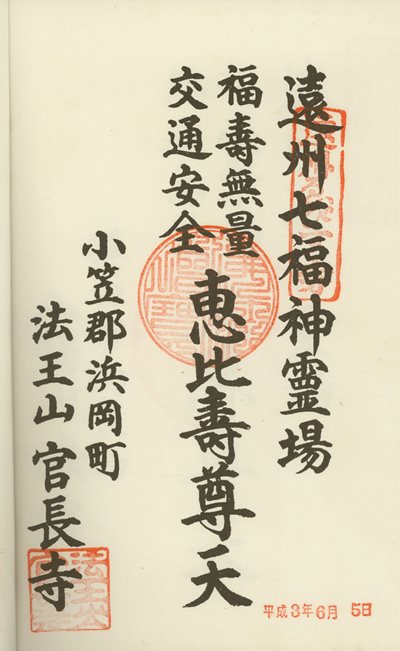 遠州七福神靈場
福壽無量
交通安全
恵比壽尊天
小笠郡浜岡町
法王山官長寺
平成3年6月 5日